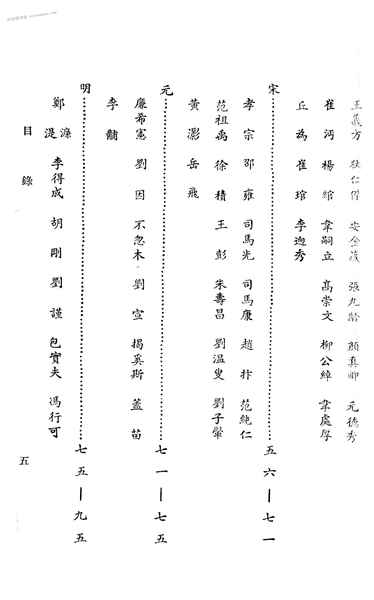 王義方 狄仁傑 安金藏 張九齡 顏真卿 元德秀
崔沔 楊綰 韋嗣立 高崇文 柳公綽 韋處厚
丘為 崔琯 李迥秀
宋 五六—七一
孝宗 邵雍 司馬光 司馬康 趙抃 范純仁
范祖禹 徐積 王彭 朱壽昌 劉溫叟 劉子翬
黃灝 岳飛
元 七一—七五
廉希憲 劉因 不忽木 劉宣 揭奚斯 蓋苗
李黼
明 七五—九五
鄭濂 湜 李得成 胡剛 劉謹 包實夫 馮行可
目錄
五